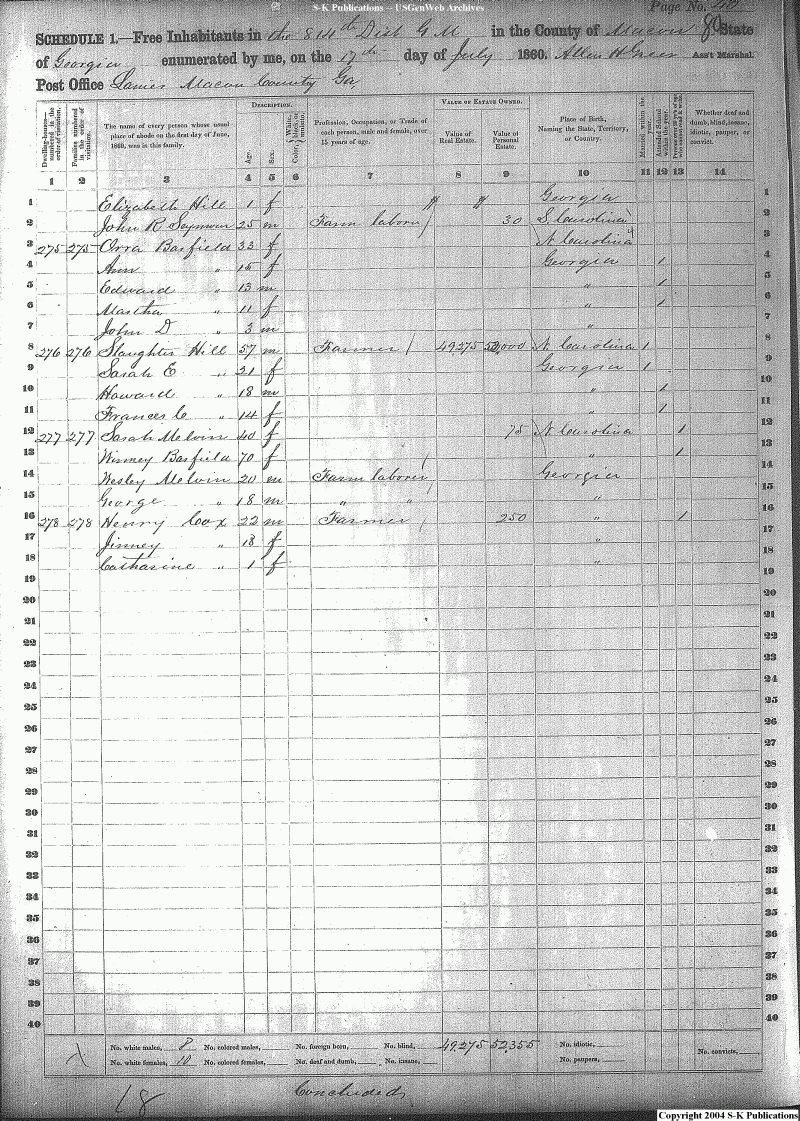 S-K Publications -- USGenWeb Archives
Page No.
SCHEDULE 1.—Free Inhabitants in the 814th Dist G M in the County of Macon State
of Georgia enumerated by me, on the 17th day of July 1860. Allen H Greer Ass't Marshal.
Post Office Lanier Macon County Ga
80
DESCRIPTION. VALUE OF ESTATE OWNED.
Dwelling-houses—numbered in the order of visitation. Families numbered in the order of visitation. The name of every person whose usual place of abode on the first day of June, 1860, was in this family. Age. Sex. Color, White, black, or mulatto. Profession, Occupation, or Trade of each person, male and female, over 15 years of age. Value of Real Estate. Value of Personal Estate. Place of Birth, Naming the State, Territory, or Country. Married within the year. Attended School within the year. Whether deaf and dumb, blind, insane, idiotic, pauper, or convict.
1 2 3 4 5 6 7 8 9 10 11 12 13 14
1 Elizabeth Hill 1 f $ $ Georgia 1
2 John R 25 m Farm laborer 30 S Carolina 2
3 275 275 Orra Barfield 33 f N Carolina 3
4 Ann " 15 f Georgia 1 4
5 Edward " 13 m " 1 5
6 Martha " 11 f " 1 6
7 John D " 3 m " 7
8 276 276 Slaughter Hill 57 m Farmer 49,275 52,000 N Carolina 1 8
9 Sarah E " 21 f Georgia 1 9
10 Howard " 18 m " 1 10
11 Frances C " 14 f " 1 11
12 277 277 Sarah Melvin 40 f 75 N Carolina 1 12
13 Winney Barfield 70 f " 1 13
14 Wesley Melvin 20 m Farm laborer Georgia 14
15 George " 18 m " " " 15
16 278 278 Henry Cox 22 m Farmer 250 " 1 16
17 Jinney " 18 f " 17
18 Catharine " 1 f " 18
19 19
20 20
21 21
22 22
23 23
24 24
25 25
26 26
27 27
28 28
29 29
30 30
31 31
32 32
33 33
34 34
35 35
36 36
37 37
38 38
39 39
40 40
No. white males, 8 No. colored males, No. foreign born, No. blind, 49,275 52,355 No. idiotic,
No. white females, 10 No. colored females, No. deaf and dumb, No. insane, No. paupers, No. convicts,
18 Concluded
Copyright 2004 S-K Publications